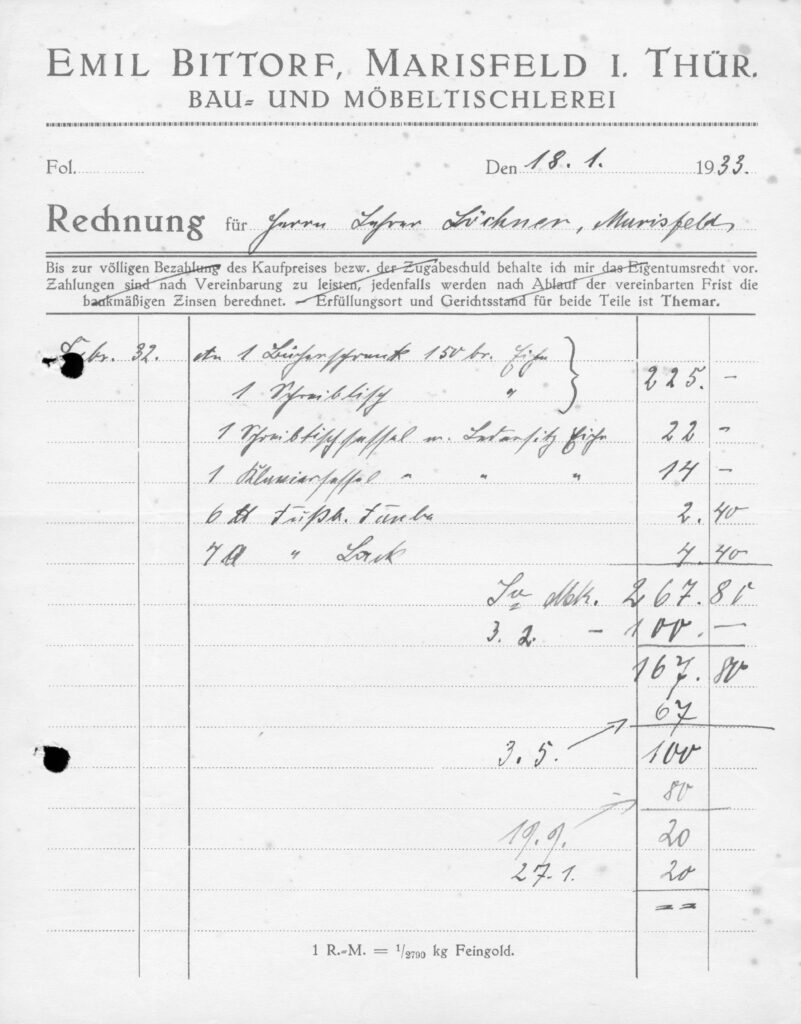 EMIL BITTORF, MARISFELD I. THÜR.
BAU- UND MÖBELTISCHLEREI
Fol. Den 18. 1. 1933.
Rechnung für Herrn Lehrer Löchner, Marisfeld
Bis zur völligen Bezahlung des Kaufpreises bezw. der Zugabeschuld behalte ich mir das Eigentumsrecht vor.
Zahlungen sind nach Vereinbarung zu leisten, jedenfalls werden nach Ablauf der vereinbarten Frist die
bankmäßigen Zinsen berechnet. — Erfüllungsort und Gerichtsstand für beide Teile ist Themar.
Febr. 32. An 1 Bücherschrank 150 br. Eiche
1 Schreibtisch " 225. –
1 Schreibtischsessel m. Ledersitz Eiche 22 –
1 Klaviersessel " " " 14 –
6 Fußb. Farbe 2. 40
4 " Lack 4. 40
Sa Mk. 267. 80
3. 2. – 100. —
167. 80
67
3. 5. 100
80
19. 9. 20
27. 1. 20
= =
1 R.-M. = 1/2790 kg Feingold.